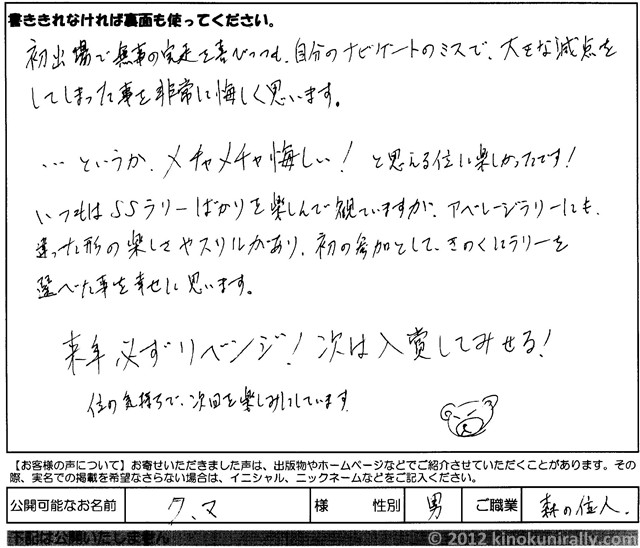 書ききれなければ裏面も使ってください。
初出場で無事の完走を喜びつつも、自分のナビゲートのミスで、大きな減点を
してしまった事を非常に悔しく思います。
…というか、メチャメチャ悔しい! と思える位に楽しかったです!
いつもはSSラリーばかりを楽しんで観ていますが、アベレージラリーにも、
違った形の楽しさやスリルがあり、初の参加として、きのくにラリーを
選べた事を幸せに思います。
来年必ずリベンジ! 次は入賞してみせる!
位の気持ちで、次回を楽しみにしています
【お客様の声について】お寄せいただきました声は、出版物やホームページなどでご紹介させていただくことがあります。その
際、実名での掲載を希望なさらない場合は、イニシャル、ニックネームなどをご記入ください。
公開可能なお名前 ク、マ 様 性別 男 ご職業 森の住人.
下記は公開いたしません
© 2012 kinokunirally.com